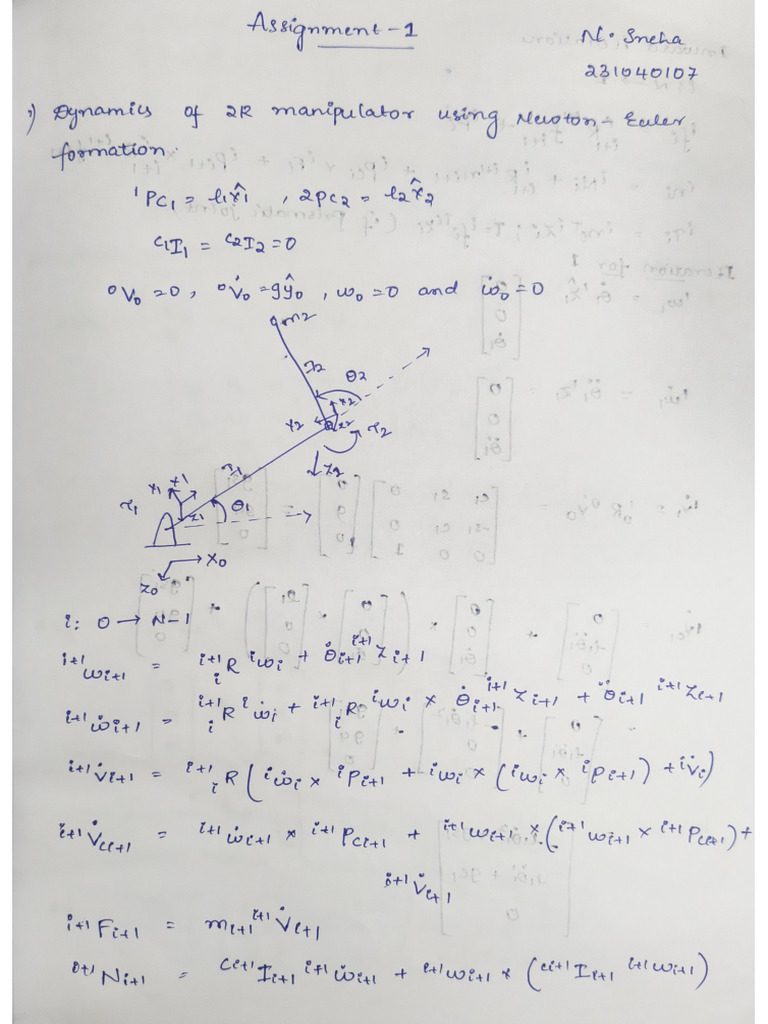 Assignment-1
N. Sneha
231040107
1) Dynamics of 2R manipulator using Newton-Euler
formation.
¹PC₁ = l₁x̂₁ , 2PC₂ = l₂x̂₂
C₁I₁ = C₂I₂ = 0
⁰V₀ = 0, ⁰V̇₀ = gŷ₀ , ω₀ = 0 and ω̇₀ = 0
m₂
θ₂
x₂
Y₂
τ₂
Z₂
θ₁
τ₁
Y₁
x₁
z₁
X₀
Z₀
i: 0 → N-1
ⁱ⁺¹ωᵢ₊₁ = ⁱ⁺¹ᵢR ⁱωᵢ + θ̇ᵢ₊₁ ⁱ⁺¹Zᵢ₊₁
ⁱ⁺¹ω̇ᵢ₊₁ = ⁱ⁺¹ᵢR ⁱω̇ᵢ + ⁱ⁺¹ᵢR ⁱωᵢ × θ̇ᵢ₊₁ ⁱ⁺¹Zᵢ₊₁ + θ̈ᵢ₊₁ ⁱ⁺¹Zᵢ₊₁
ⁱ⁺¹V̇ᵢ₊₁ = ⁱ⁺¹ᵢR (ⁱω̇ᵢ × ⁱPᵢ₊₁ + ⁱωᵢ × (ⁱωᵢ × ⁱPᵢ₊₁) + ⁱV̇ᵢ)
ⁱ⁺¹V̇cᵢ₊₁ = ⁱ⁺¹ω̇ᵢ₊₁ × ⁱ⁺¹Pcᵢ₊₁ + ⁱ⁺¹ωᵢ₊₁ × (ⁱ⁺¹ωᵢ₊₁ × ⁱ⁺¹Pcᵢ₊₁) +
ⁱ⁺¹V̇ᵢ₊₁
ⁱ⁺¹Fᵢ₊₁ = mᵢ₊₁ ⁱ⁺¹V̇ᵢ₊₁
ⁱ⁺¹Nᵢ₊₁ = Cⁱ⁺¹Iᵢ₊₁ ⁱ⁺¹ω̇ᵢ₊₁ + ⁱ⁺¹ωᵢ₊₁ × (ᶜⁱ⁺¹Iᵢ₊₁ ⁱ⁺¹ωᵢ₊₁)